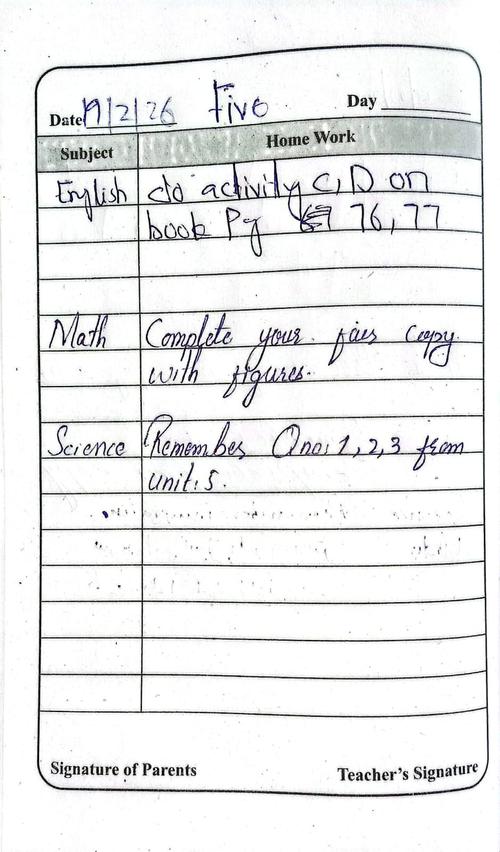 Date 19/2/26 Five Day
Subject Home Work
English do activity C, D on
book Pg 76, 77
Math Complete your fair copy
with figures.
Science Remember Q no: 1, 2, 3 from
unit: 5.
Signature of Parents Teacher's Signature